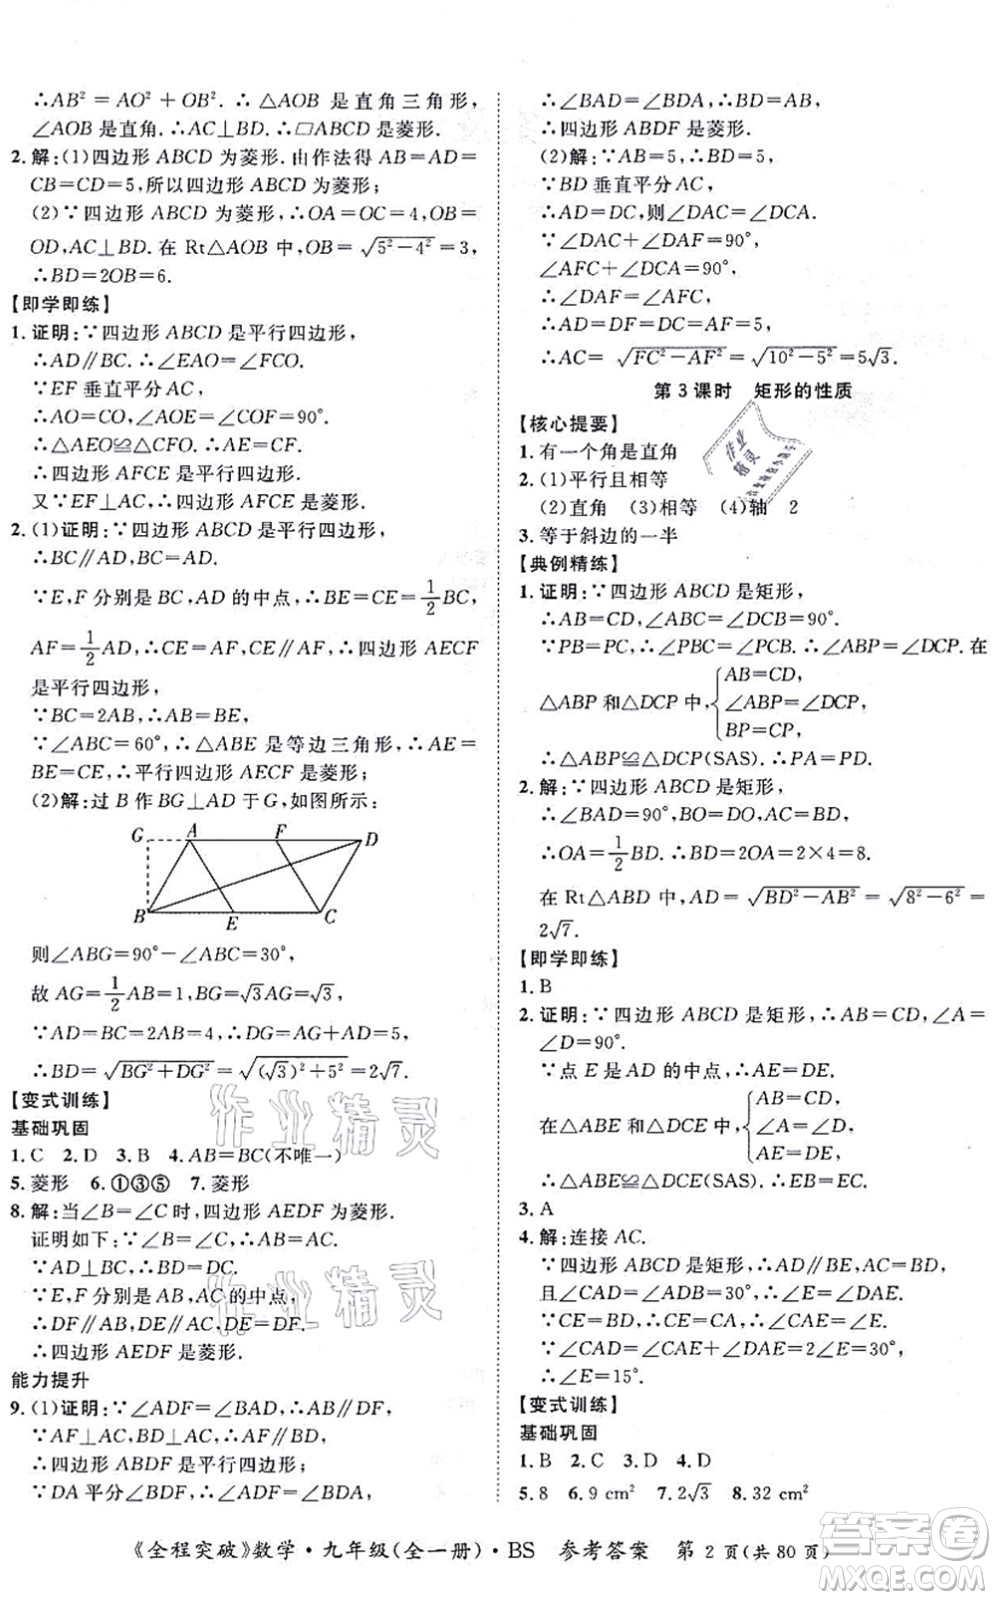 ∴AB²=AO²+OB². ∴△AOB 是直角三角形,
∠AOB 是直角. ∴AC⊥BD. ∴▱ABCD 是菱形.
2. 解:(1)四边形 ABCD 为菱形. 由作法得 AB=AD=
CB=CD=5,所以四边形 ABCD 为菱形;
(2)∵四边形 ABCD 为菱形,∴OA=OC=4,OB=
OD,AC⊥BD. 在 Rt△AOB 中,OB=√(5²−4²)=3,
∴BD=2OB=6.
【即学即练】
1. 证明:∵四边形 ABCD 是平行四边形,
∴AD∥BC. ∴∠EAO=∠FCO.
∵EF 垂直平分 AC,
∴AO=CO,∠AOE=∠COF=90°.
∴△AEO≌△CFO. ∴AE=CF.
∴四边形 AFCE 是平行四边形.
又∵EF⊥AC,∴四边形 AFCE 是菱形.
2. (1)证明:∵四边形 ABCD 是平行四边形,
∴BC∥AD,BC=AD.
∵E,F 分别是 BC,AD 的中点,∴BE=CE=1/2BC,
AF=1/2AD,∴CE=AF,CE∥AF,∴四边形 AECF
是平行四边形,
∵BC=2AB,∴AB=BE,
∵∠ABC=60°,∴△ABE 是等边三角形,∴AE=
BE=CE,∴平行四边形 AECF 是菱形;
(2)解:过 B 作 BG⊥AD 于 G,如图所示:
G A F D
B E C
则∠ABG=90°−∠ABC=30°,
故 AG=1/2AB=1,BG=√3AG=√3,
∵AD=BC=2AB=4,∴DG=AG+AD=5,
∴BD=√(BG²+DG²)=√((√3)²+5²)=2√7.
【变式训练】
基础巩固
1. C 2. D 3. B 4. AB=BC(不唯一)
5. 菱形 6. ①③⑤ 7. 菱形
8. 解:当∠B=∠C 时,四边形 AEDF 为菱形.
证明如下:∵∠B=∠C,∴AB=AC.
∵AD⊥BC,∴BD=DC.
∵E,F 分别是 AB,AC 的中点,
∴DF∥AB,DE∥AC,DE=DF.
∴四边形 AEDF 是菱形.
能力提升
9. (1)证明:∵∠ADF=∠BAD,∴AB∥DF,
∵AF⊥AC,BD⊥AC,∴AF∥BD.
∴四边形 ABDF 是平行四边形.
∵DA 平分∠BDF,∴∠ADF=∠BDA,
∴∠BAD=∠BDA,∴BD=AB,
∴四边形 ABDF 是菱形.
(2)解:∵BD=5,∴AB=5,
∵BD 垂直平分 AC,
∴AD=DC,则∠DAC=∠DCA.
∵∠DAC+∠DAF=90°,
∠AFC+∠ACD=90°,
∴∠DAF=∠AFD,
∴AD=DF=DC=AB=5,
∴AC=√(FC²−AF²)=√(10²−5²)=5√3.
第 3 课时 矩形的性质
【核心提要】
1. 有一个角是直角
2. (1)平行且相等
(2)直角 (3)相等 (4)轴 2
3. 等于斜边的一半
【典例精练】
1. 证明:∵四边形 ABCD 是矩形,
∴AB=CD,∠ABC=∠DCB=90°.
∵PB=PC,∴∠PBC=∠PCB. ∴∠ABP=∠DCP. 在
△ABP 和△DCP 中,{AB=CD,
∠ABP=∠DCP,
BP=CP,
∴△ABP≌△DCP(SAS). ∴PA=PD.
2. 解:∵四边形 ABCD 是矩形,
∴∠BAD=90°,BO=DO,AC=BD,
∴OA=1/2BD. ∴BD=2OA=2×4=8.
在 Rt△ABD 中,AD=√(BD²−AB²)=√(8²−6²)=
2√7.
【即学即练】
1. B
2. 证明:∵四边形 ABCD 是矩形,∴AB=CD,∠A=
∠D=90°.
∵点 E 是 AD 的中点,∴AE=DE.
在△ABE 和△DCE 中,{AB=CD,
∠A=∠D,
AE=DE,
∴△ABE≌△DCE(SAS). ∴EB=EC.
3. A
4. 解:连接 AC.
∵四边形 ABCD 是矩形,∴AD∥BE,AC=BD,
且∠CAD=∠ADB=30°. ∴∠E=∠DAE.
∵CE=BD,∴CE=CA. ∴∠CAE=∠E.
∵∠CAD=∠CAE+∠DAE,∴∠E+∠E=30°,
∴∠E=15°.
【变式训练】
基础巩固
1. B 2. C 3. D 4. D
5. 8 6. 9 cm² 7. 2√3 8. 32 cm²
《全程突破》数学·九年级(全一册)·BS 参考答案 第 2 页(共 80 页)
作业精灵
作业精灵
作业精灵
答案圈
MXQE.COM